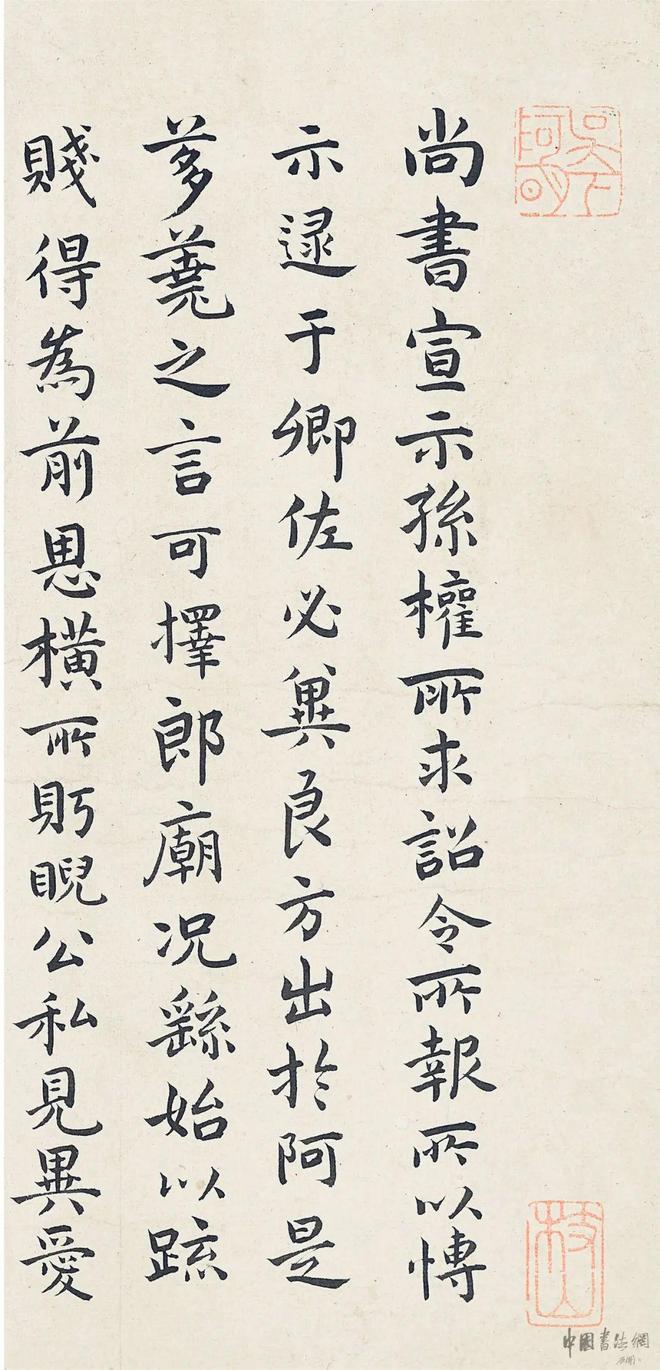 尚書宣示孫權所求詔令所報所以博
示逯于卿佐必冀良方出於阿是
芻蕘之言可擇郎廟況繇始以疏
賤得為前恩橫所盻睨公私見異愛
枝山
中國書法網